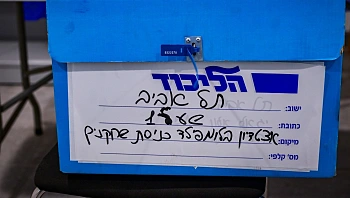 הליכוד
ישוב: תל אביב
כתובת: שער 15
מיקום: אצטדיון בלומפילד כניסת שחקנים
מס' קלפי: